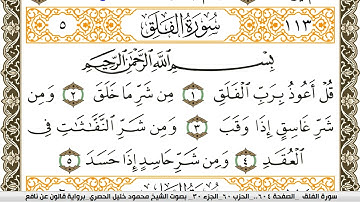 ١١٣ سُورَةُ الفَلَقِ ٥
بِسْمِ اللَّهِ الرَّحْمَٰنِ الرَّحِيمِ
قُلْ أَعُوذُ بِرَبِّ الْفَلَقِ ١ مِن شَرِّ مَا خَلَقَ ٢ وَمِن
شَرِّ غَاسِقٍ إِذَا وَقَبَ ٣ وَمِن شَرِّ النَّفَّٰثَٰتِ فِى
الْعُقَدِ ٤ وَمِن شَرِّ حَاسِدٍ إِذَا حَسَدَ ٥
سورة الفلق _الصفحة ٦٠٤_ الحزب ٦٠_ الجزء ٣٠_ بصوت الشيخ محمود خليل الحصري_ برواية قانون عن نافع